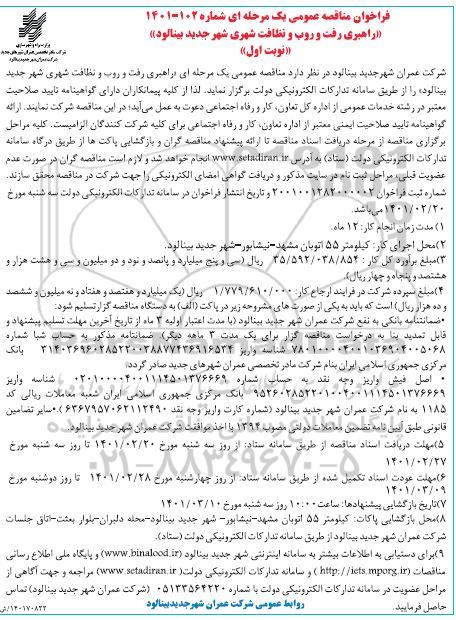 فراخوان مناقصه عمومی یک مرحله ای شماره ۱۰۲-۱۴۰۱
«راهبری رفت و روب و نظافت شهری شهر جدید بینالود»
«نوبت اول»
شرکت عمران شهرجدید بینالود در نظر دارد مناقصه عمومی یک مرحله ای «راهبری رفت و روب و نظافت شهری شهر جدید
بینالود» را از طریق سامانه تدارکات الکترونیکی دولت برگزار نماید. لذا از کلیه پیمانکاران دارای گواهینامه تایید صلاحیت
معتبر در رشته خدمات عمومی از اداره کل تعاون، کار و رفاه اجتماعی دعوت به عمل می‌آید؛ در این مناقصه شرکت نمایند. ارائه
گواهینامه تایید صلاحیت ایمنی معتبر از اداره تعاون، کار و رفاه اجتماعی برای کلیه شرکت کنندگان الزامیست. کلیه مراحل
برگزاری مناقصه از مرحله دریافت اسناد مناقصه تا ارائه پیشنهاد مناقصه گران و بازگشایی پاکت ها از طریق درگاه سامانه
تدارکات الکترونیکی دولت (ستاد) به آدرس www.setadiran.ir انجام خواهد شد و لازم است مناقصه گران در صورت عدم
عضویت قبلی، مراحل ثبت نام در سایت مذکور و دریافت گواهی امضای الکترونیکی را جهت شرکت در مناقصه محقق سازند.
شماره ثبت فراخوان ۲۰۰۱۰۰۱۲۸۲۰۰۰۰۰۲ و تاریخ انتشار فراخوان در سامانه تدارکات الکترونیکی دولت سه شنبه مورخ
۱۴۰۱/۰۲/۲۰ می‌باشد.
۱) مدت زمان انجام کار: ۱۲ ماه.
۲) محل اجرای کار: کیلومتر ۵۵ اتوبان مشهد-نیشابور-شهر جدید بینالود.
۳) مبلغ برآورد کل کار: ۳۵/۵۹۲/۰۳۸/۸۵۴ ریال (سی و پنج میلیارد و پانصد و نود و دو میلیون و سی و هشت هزار و
هشتصد و پنجاه و چهار ریال).
۴) مبلغ سپرده شرکت در فرایند ارجاع کار: ۱/۷۷۹/۶۱۰/۰۰۰ ریال (یک میلیارد و هفتصد و هفتاد و نه میلیون و ششصد
و ده هزار ریال) است که باید به یکی از صورت های مشروحه زیر در پاکت (الف) به دستگاه مناقصه گزار تسلیم شود:
•ضمانتنامه بانکی به نفع شرکت عمران شهر جدید بینالود (با مدت اعتبار اولیه ۳ ماه از تاریخ آخرین مهلت تسلیم پیشنهاد و
قابل تمدید بنا به درخواست مناقصه گزار برای یک مدت ۳ ماهه دیگر). ضمانتنامه مذکور به حساب شبا شماره
شناسه واریز بانک
مرکزی جمهوری اسلامی ایران بنام شرکت مادر تخصصی عمران شهرهای جدید صادر گردد؛
• اصل فیش واریز وجه نقد به حساب شماره شناسه واریز
بانک مرکزی جمهوری اسلامی ایران شعبه معاملات ریالی کد
۱۱۸۵ به نام شرکت عمران شهر جدید بینالود (شماره کارت واریز وجه نقد ). •سایر تضامین
قانونی طبق آیین نامه تضمین معاملات دولتی مصوب ۱۳۹۴ با اخذ موافقت شرکت عمران شهرجدید بینالود.
۵) مهلت دریافت اسناد مناقصه از طریق سامانه ستاد: از روز سه شنبه مورخ ۱۴۰۱/۰۲/۲۰ تا روز سه شنبه مورخ
۱۴۰۱/۰۲/۲۷
۶) مهلت عودت اسناد تکمیل شده از طریق سامانه ستاد: از روز چهارشنبه مورخ ۱۴۰۱/۰۲/۲۸ تا روز دوشنبه مورخ
۱۴۰۱/۰۳/۰۹
۷) تاریخ بازگشایی پیشنهادها: ساعت ۱۰:۰۰ روز سه شنبه مورخ ۱۴۰۱/۰۳/۱۰
۸) محل بازگشایی پاکات: کیلومتر ۵۵ اتوبان مشهد-نیشابور- شهر جدید بینالود-محله دلبران-بلوار بعثت-اتاق جلسات
شرکت عمران شهر جدید بینالود از طریق سامانه تدارکات الکترونیکی دولت (ستاد).
۹) برای دستیابی به اطلاعات بیشتر به سامانه اینترنتی شهر جدید بینالود (www.binalood.ir) و پایگاه ملی اطلاع رسانی
مناقصات (http://iets.mporg.ir) و سامانه تدارکات الکترونیکی دولت (www.setadiran.ir) مراجعه و جهت آگاهی از
مراحل عضویت در سامانه تدارکات الکترونیکی دولت با شماره ۰۵۱۳۳۵۶۴۲۲۰ (شرکت عمران شهر جدید بینالود) تماس
حاصل فرمایید.
روابط عمومی شرکت عمران شهرجدیدبینالود
۱۴۰۱۷۰۸۲۲/ش